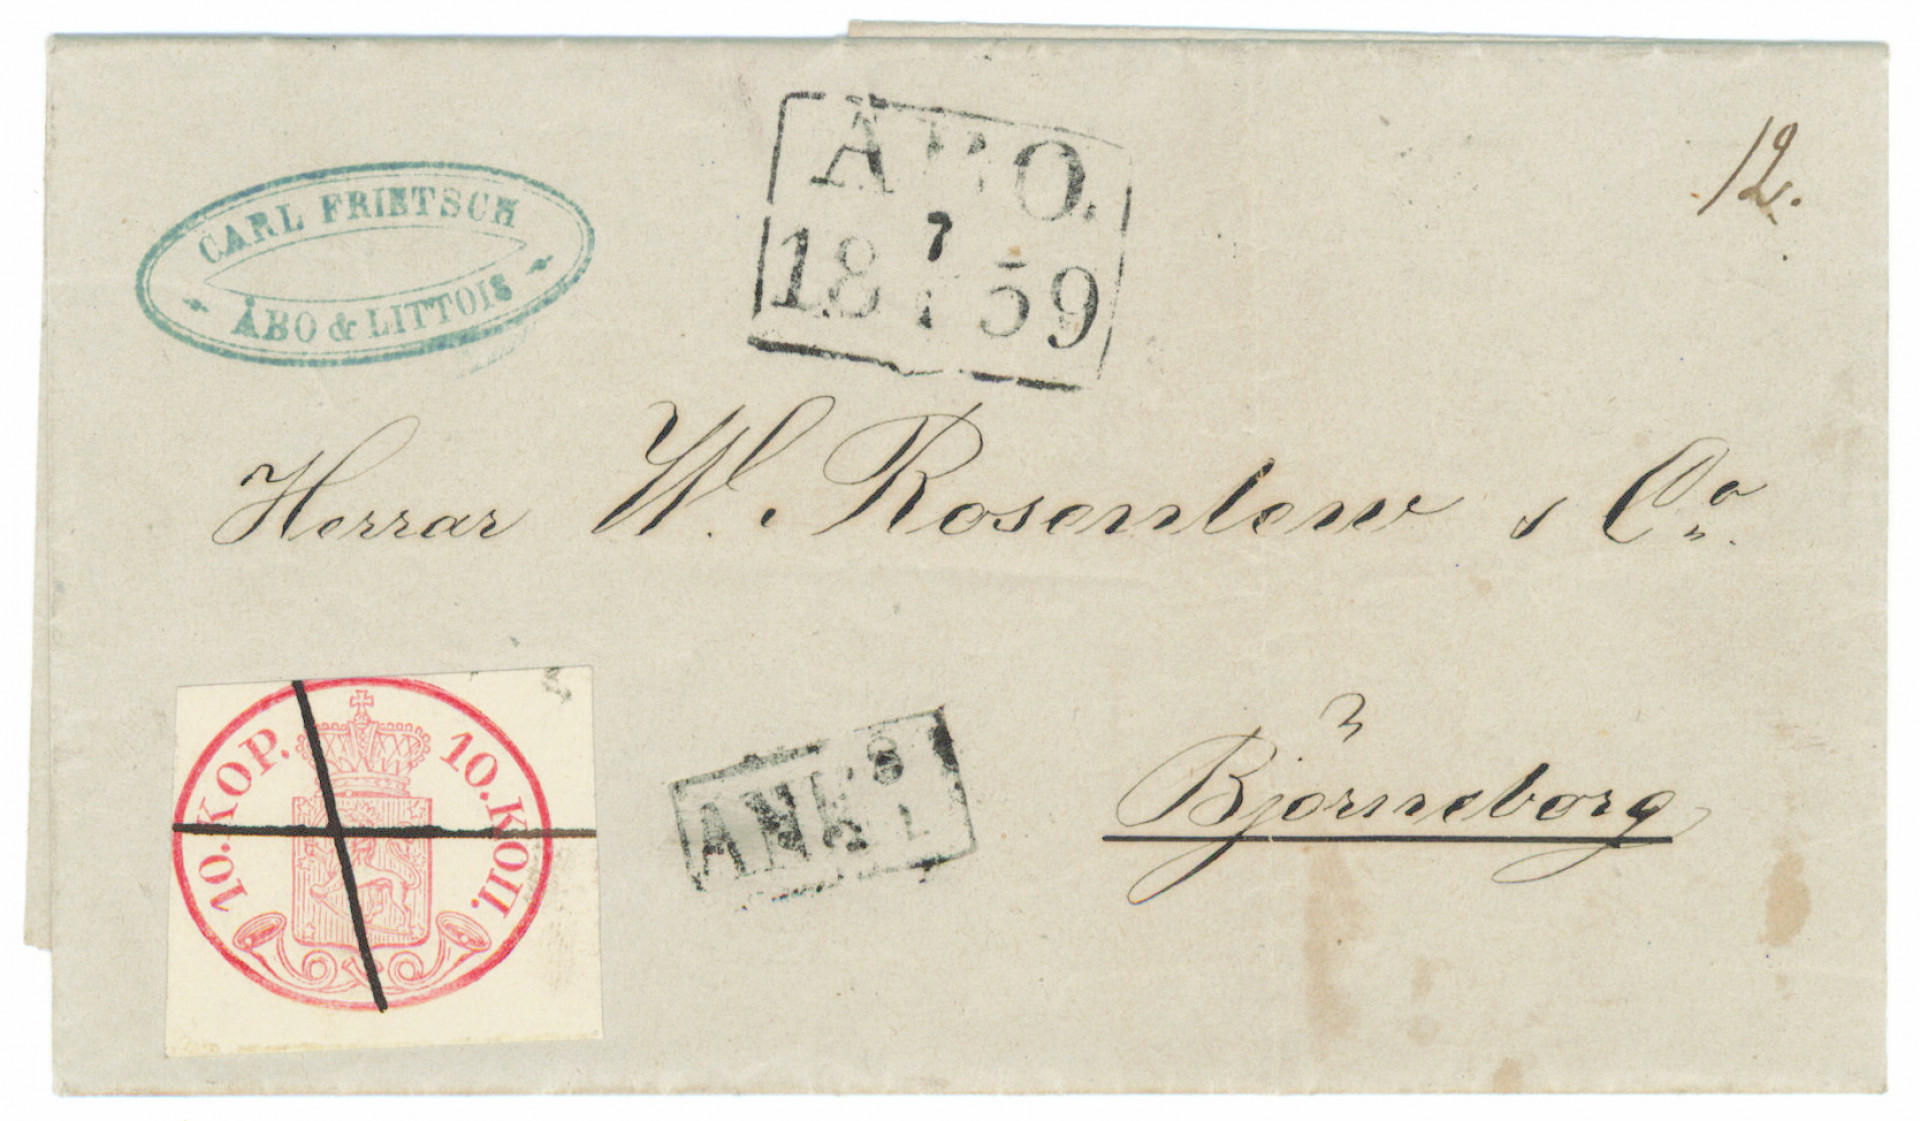 12.
ÅBO.
7
1859
1
CARL FRIETSCH
ÅBO & LITTOIS
Herrar W. Rosenlew & Co.
Björneborg
10. KOP. 10. КОП.
ANK 8
1